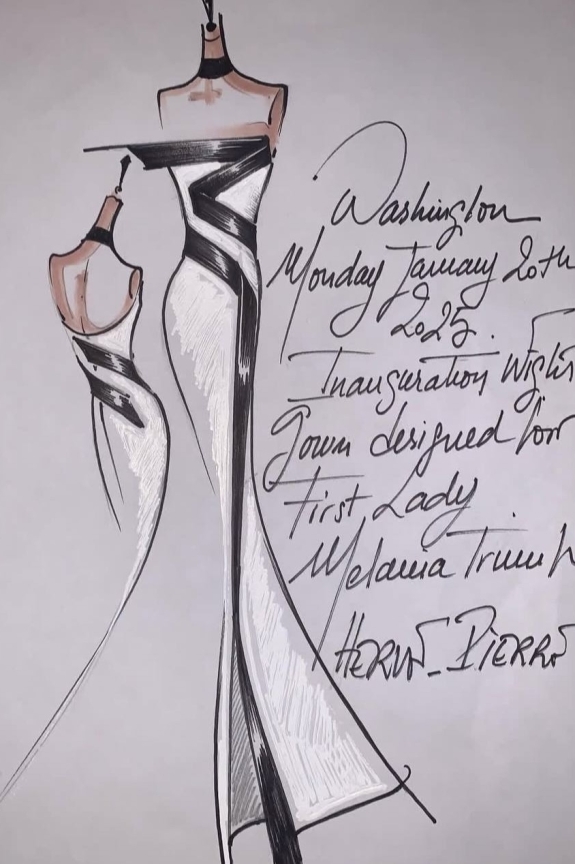 Washington
Monday January 20th
2025.
Inauguration Night
Gown designed for
First Lady
Melania Trump
HERVÉ_PIERRE